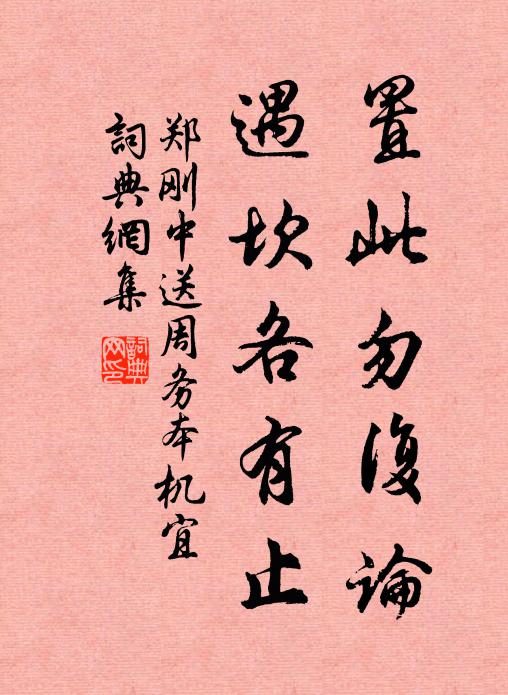 置此勿復論
遇坎各有止
郑刚中送周务本机宜
詞典網集
詞典
网印